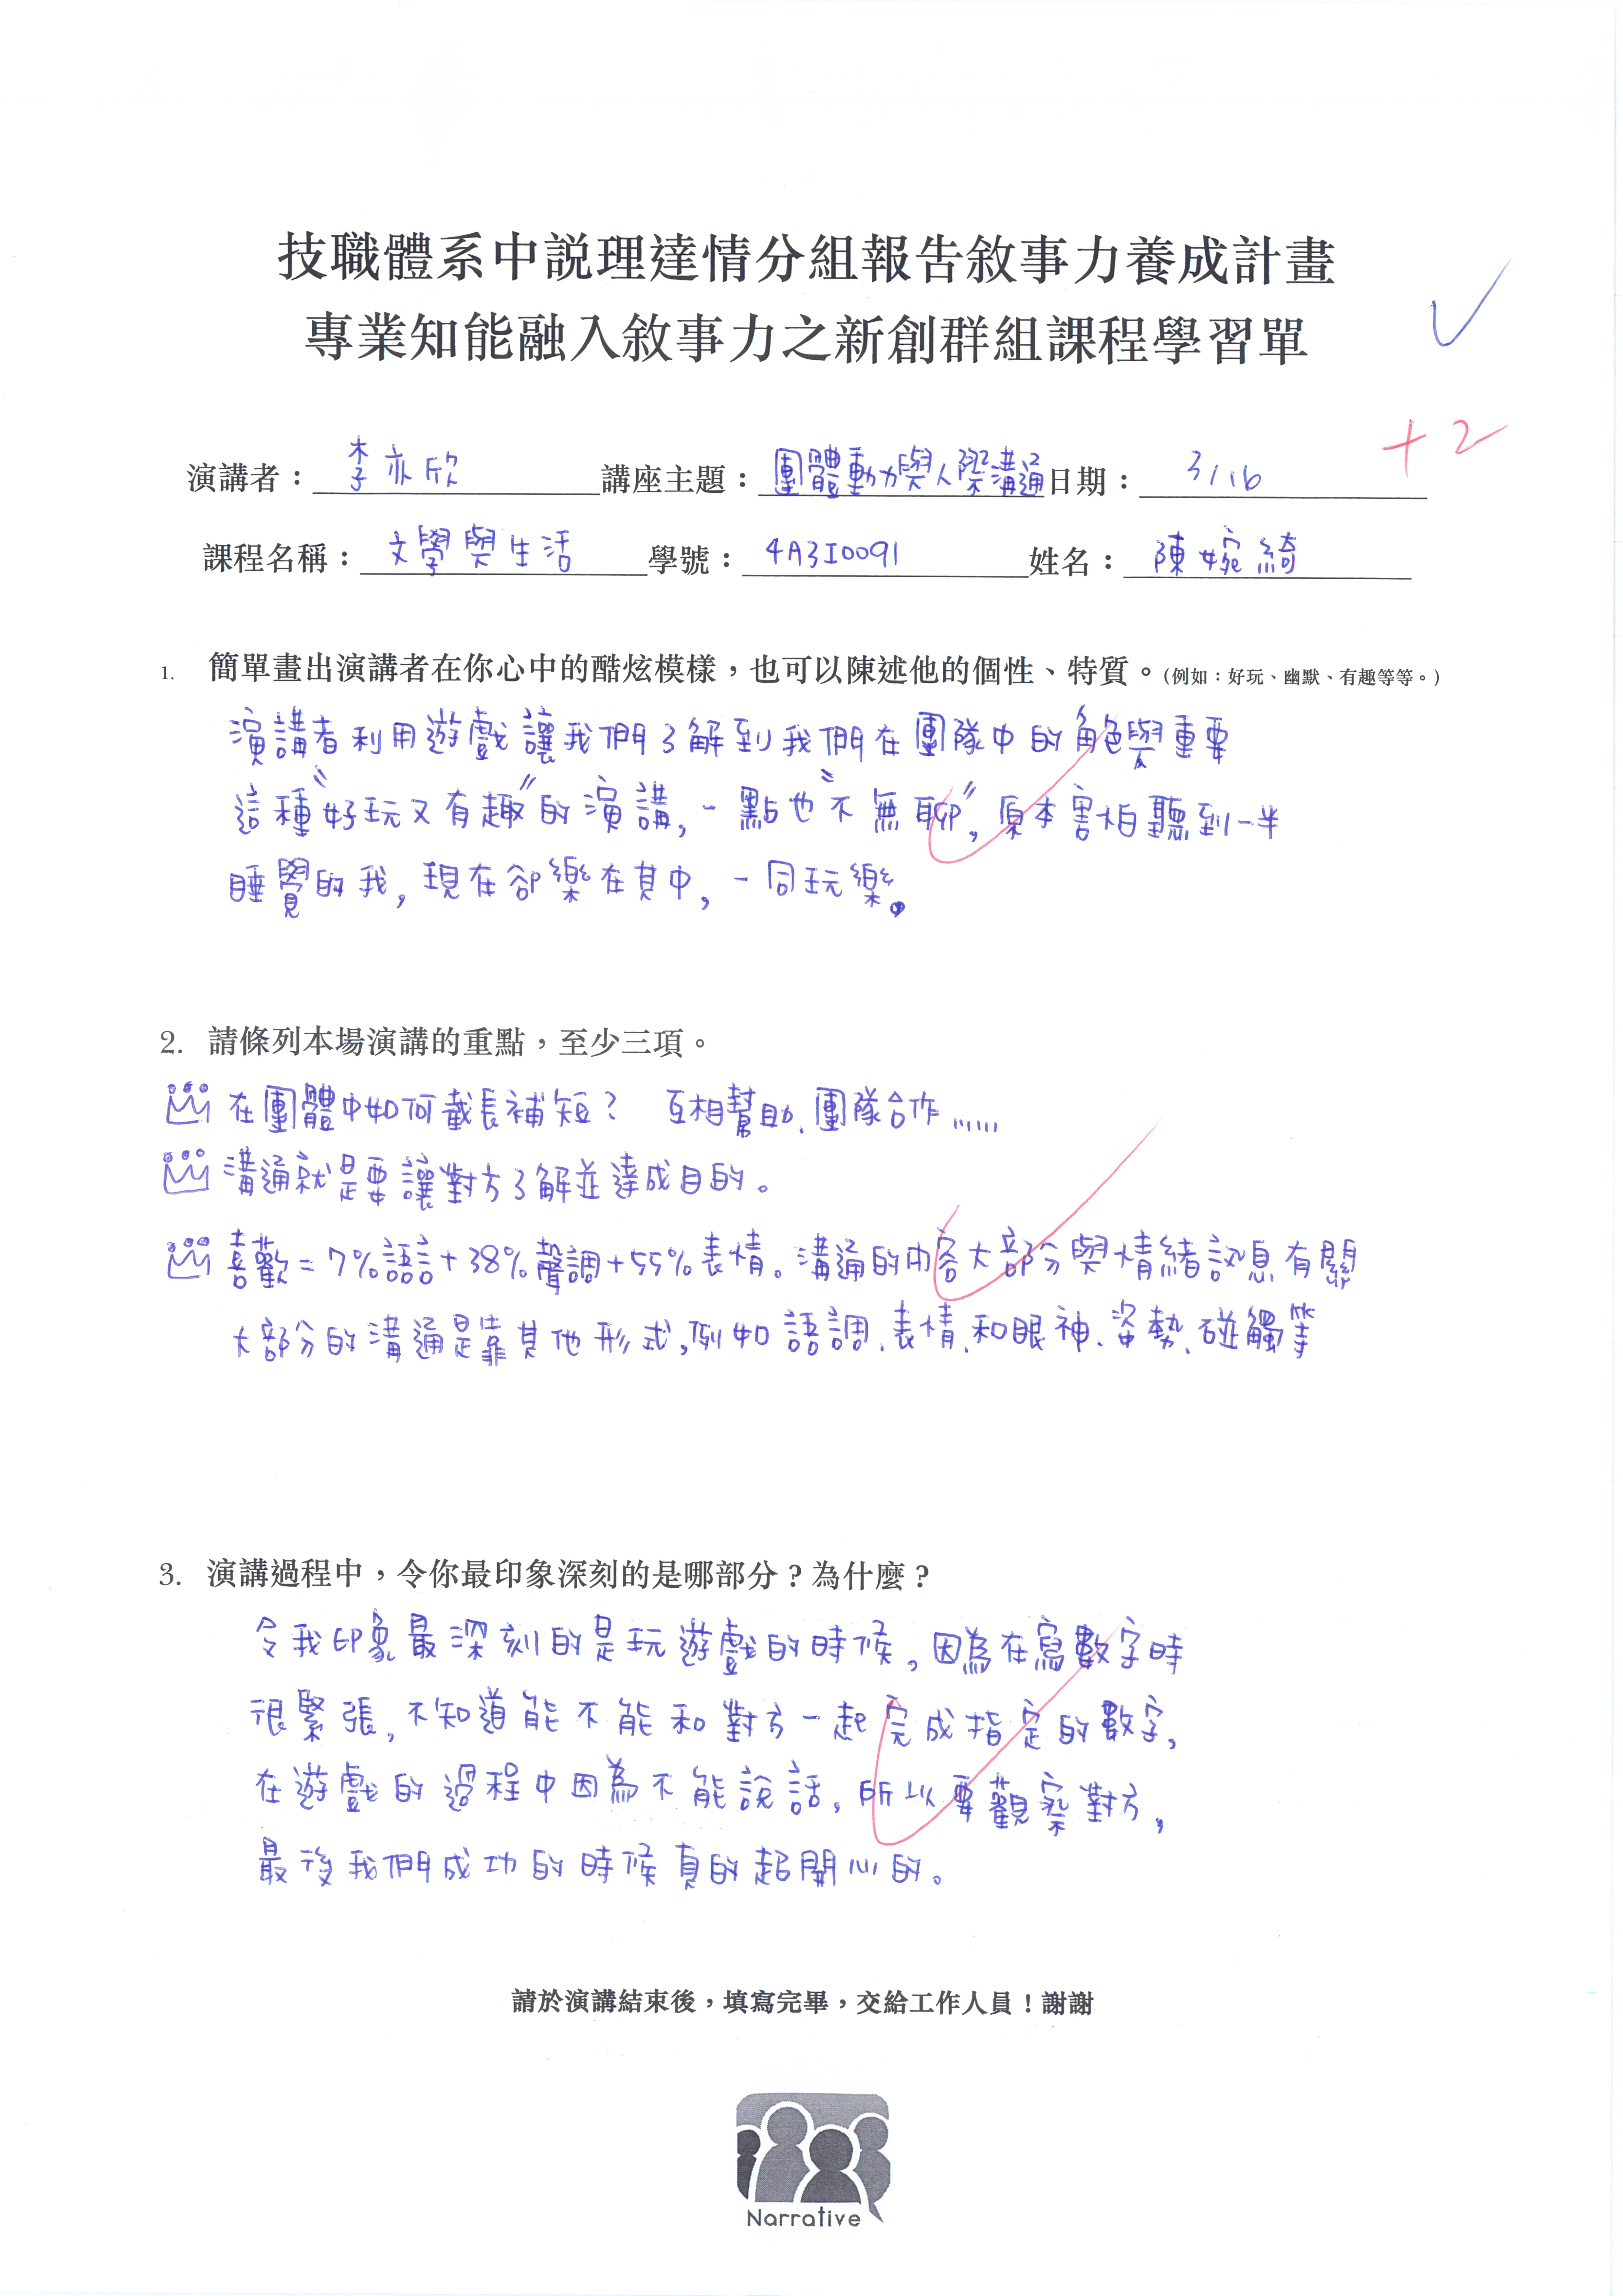 技職體系中說理達情分組報告敘事力養成計畫
專業知能融入敘事力之新創群組課程學習單
+2
演講者：李亦欣 講座主題：團體動力與人際溝通 日期：3/16
課程名稱：文學與生活 學號：4A3I0091 姓名：陳婉綺
1. 簡單畫出演講者在你心中的酷炫模樣，也可以陳述他的個性、特質。(例如：好玩、幽默、有趣等等。)
演講者利用遊戲讓我們了解到我們在團隊中的角色與重要
這種"好玩又有趣"的演講，一點也"不無聊"，原本害怕聽到一半
睡覺的我，現在卻樂在其中，一同玩樂。
2. 請條列本場演講的重點，至少三項。
在團體中如何截長補短？ 互相幫助、團隊合作......
溝通就是要讓對方了解並達成目的。
喜歡=7%語言+38%聲調+55%表情。溝通的內容大部分與情緒訊息有關
大部分的溝通是靠其他形式，例如語調、表情、和眼神、姿勢、碰觸等
3. 演講過程中，令你最印象深刻的是哪部分？為什麼？
令我印象最深刻的是玩遊戲的時候，因為在寫數字時
很緊張，不知道能不能和對方一起完成指定的數字，
在遊戲的過程中因為不能說話，所以要觀察對方，
最後我們成功的時候真的超開心的。
請於演講結束後，填寫完畢，交給工作人員！謝謝
Narrative